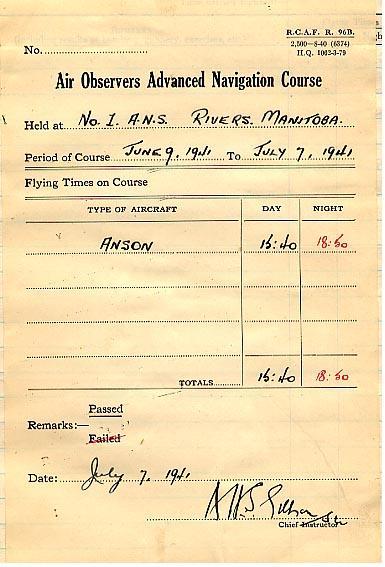 R.C.A.F. R. 96B.
2,500—8-40 (6374)
H.Q. 1062-3-79
No.
Air Observers Advanced Navigation Course
Held at No. 1. A.N.S. RIVERS. MANITOBA.
Period of Course JUNE 9, 1941 To JULY 7, 1941
Flying Times on Course
TYPE OF AIRCRAFT DAY NIGHT
ANSON 15:40 18:50
TOTALS 15:40 18:50
Passed
Remarks:—
Failed
Date: July 7, 1941
Chief Instructor